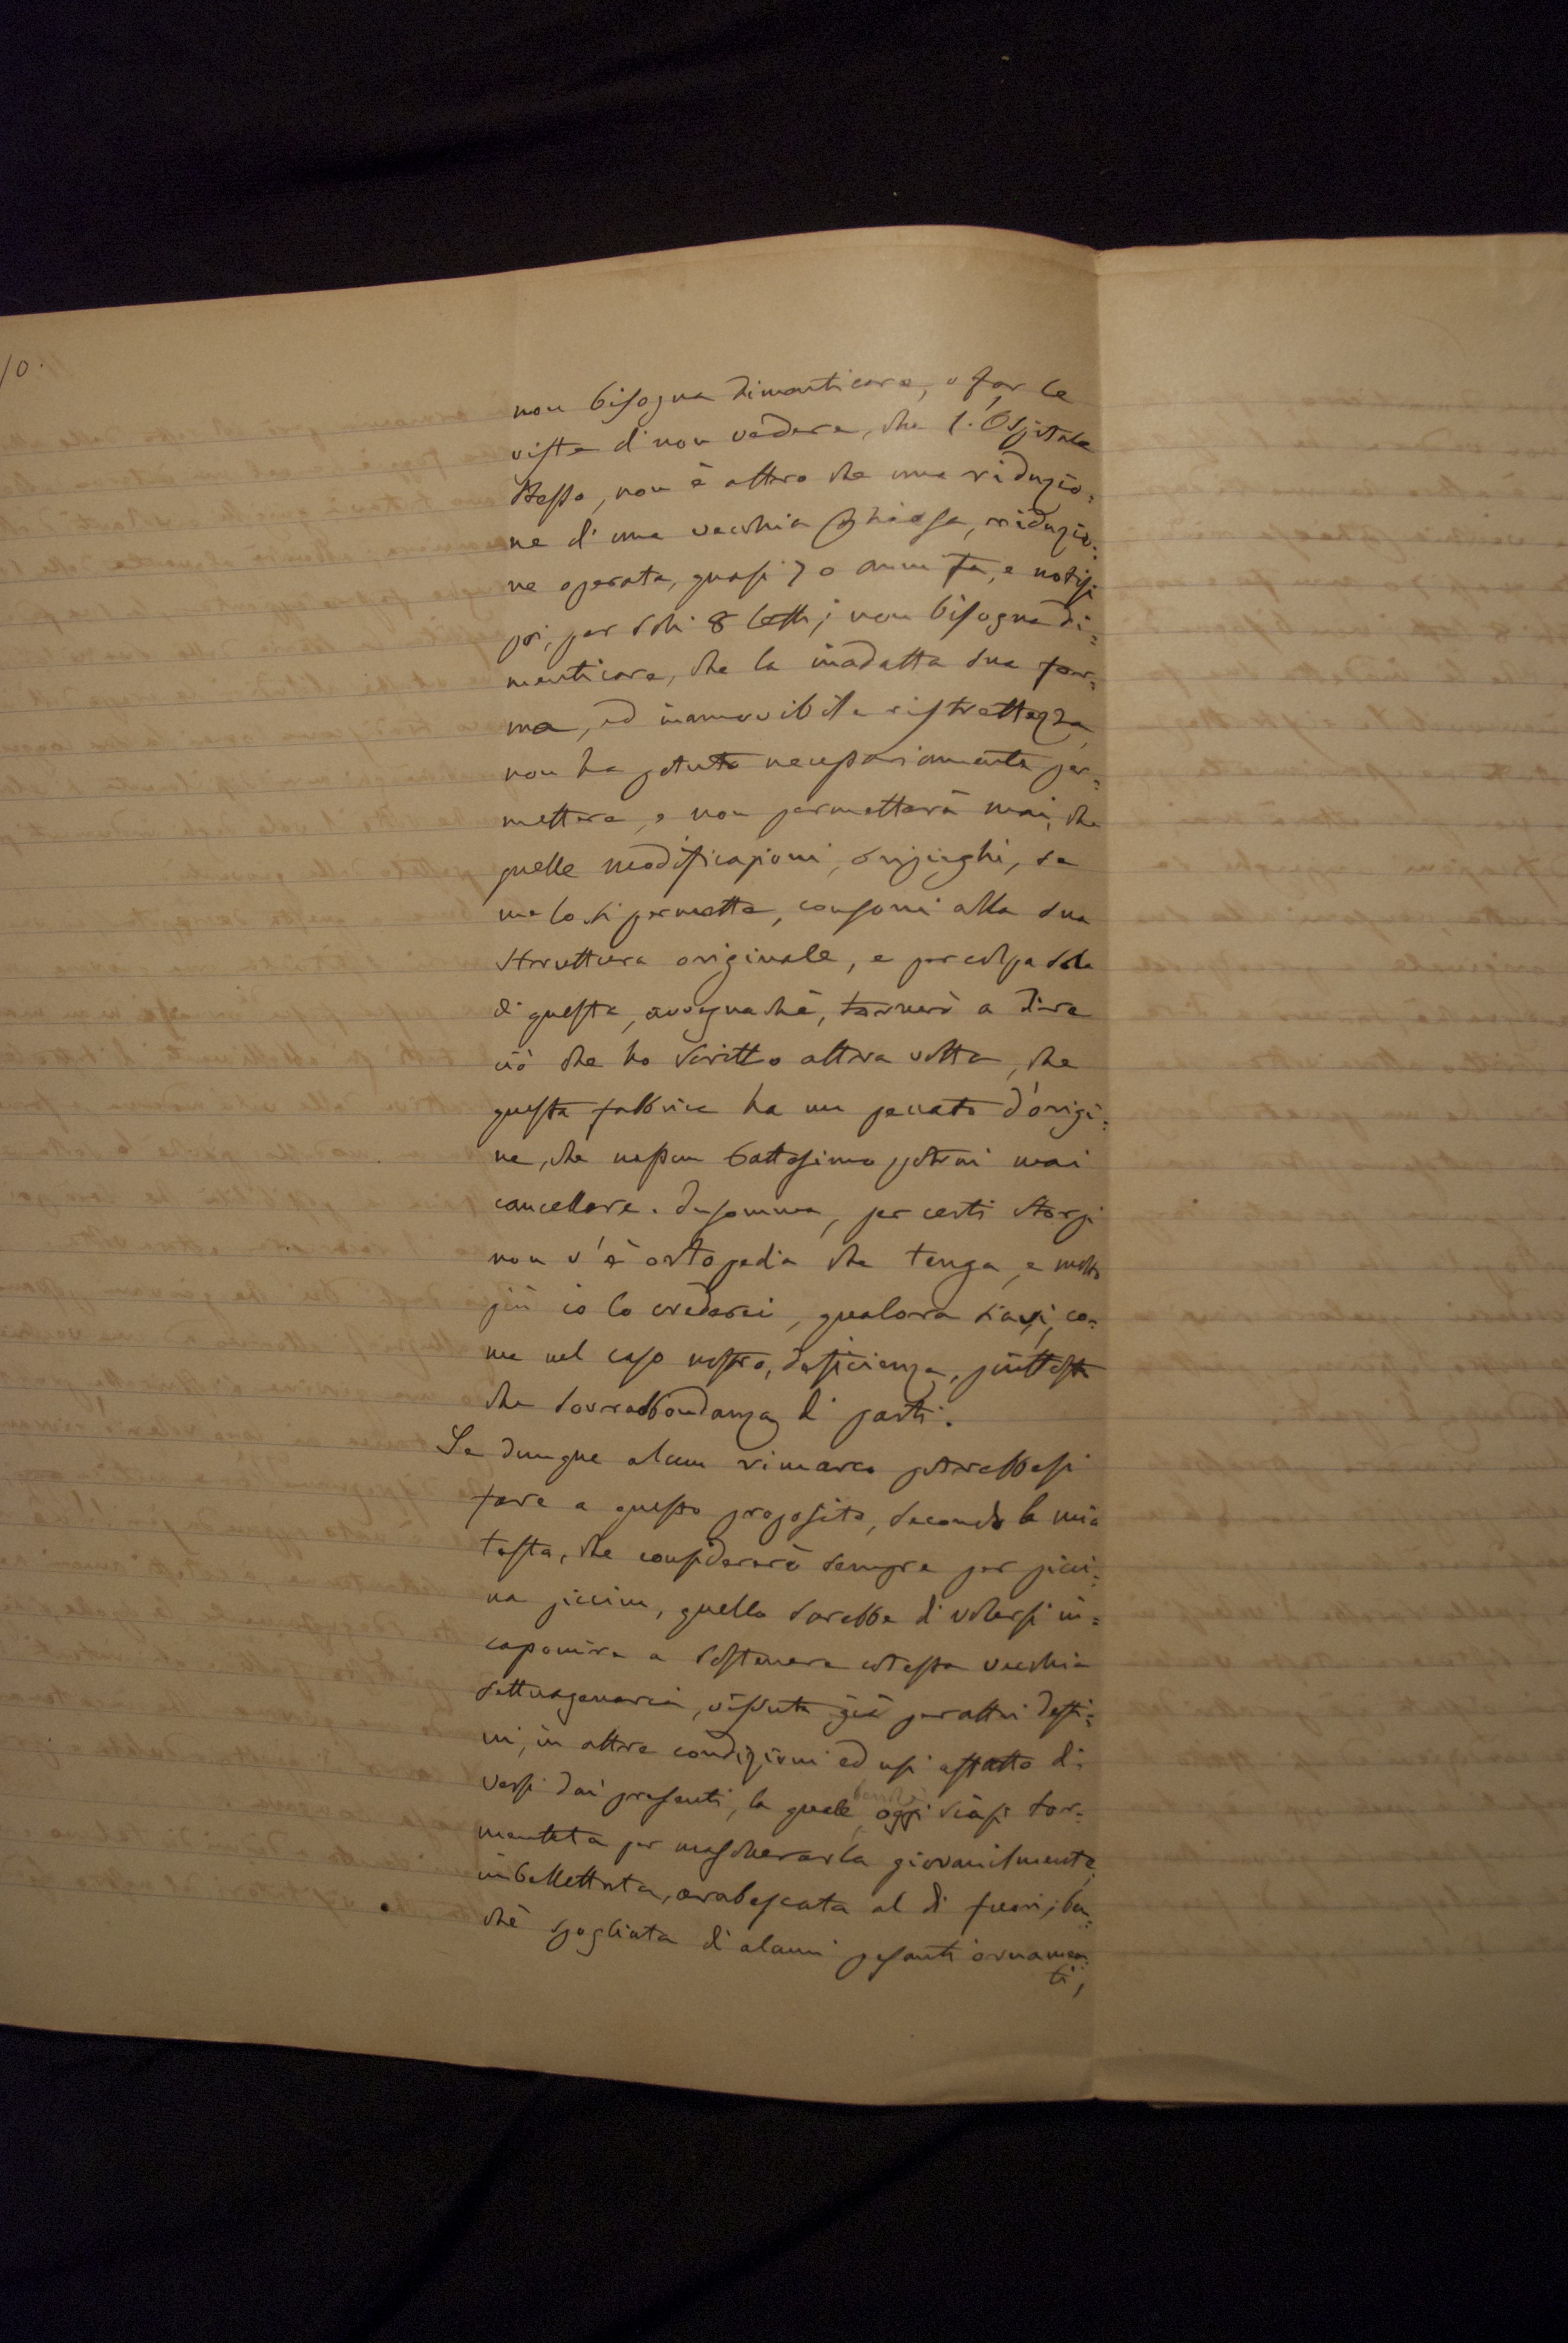 10.
non bisogna dimenticare, o far le
viste di non vedere, che l'Ospitale
stesso, non è altro che una riduzio=
ne d'una vecchia Chiesa, riduzio=
ne operata, quasi 70 anni fa, e notisi
poi, per soli 8 letti; non bisogna di=
menticare, che la inadatta sua for=
ma, ed inamovibile ristrettezza,
non ha potuto necessariamente per=
mettere, e non permetterà mai, che
quelle modificazioni, o ripieghi, se
me lo si permette, consoni alla sua
struttura originale, e per colpa sola
di questa, avvegnachè, tornerò a dire
ciò che ho scritto altra volta, che
questa fabbrica ha un peccato d'origi=
ne, che nessun battesimo potrai mai
cancellare. Insomma, per certi storpi
non v'è ortopedia che tenga, e molto
più io lo crederei, qualora siavi, co=
me nel caso nostro, deficienza, piuttosto
che sovrabbondanza di parti.
Se dunque alcun rimarco potrebbesi
fare a questo proposito, secondo la mia
testa, che considererò sempre per picci=
na piccina, quello sarebbe di volersi in=
caponire a sostenere cotessa vecchia
settuagenaria, vissuta già per altri desti=
ni, in altre condizioni ed usi affatto di
versi dai presenti, la quale oggi siasi tor=
mentata per mascherarla giovanilmente,
imbellettata, arabescata al di fuori; ben=
chè spogliata di alcuni pesanti ornamen=
ti,